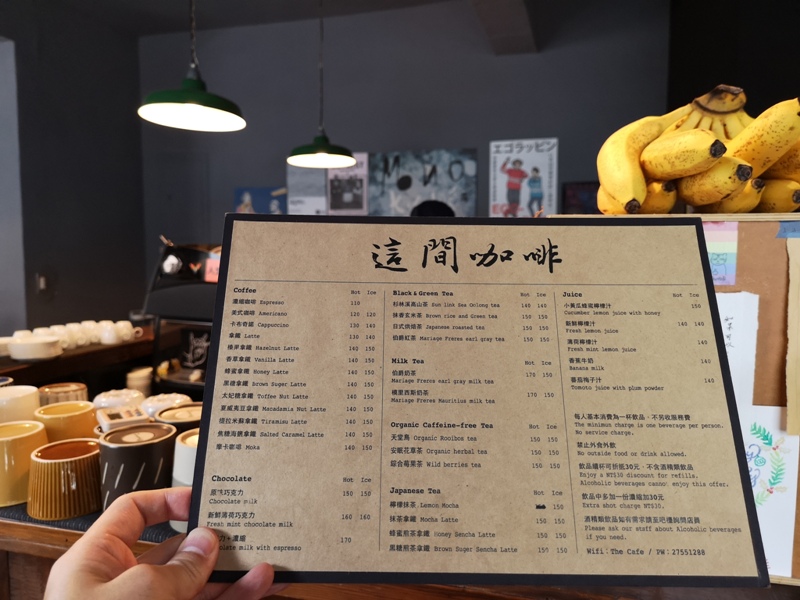 エゴラッピン
MONO
這間咖啡
Coffee Hot Ice
濃縮咖啡 Espresso 110
美式咖啡 Americano 120 120
卡布奇諾 Cappuccino 130 140
拿鐵 Latte 130 140
榛果拿鐵 Hazelnut Latte 140 150
香草拿鐵 Vanilla Latte 140 150
蜂蜜拿鐵 Honey Latte 140 150
黑糖拿鐵 Brown Suger Latte 140 150
太妃糖拿鐵 Toffee Nut Latte 140 150
夏威夷豆拿鐵 Macadamia Nut Latte 140 150
提拉米蘇拿鐵 Tiramisu Latte 140 150
焦糖海鹽拿鐵 Salted Caramel Latte 140 150
摩卡咖啡 Moka 140 150
Chocolate Hot Ice
原味巧克力 150 150
Chocolate milk
新鮮薄荷巧克力 160 160
Fresh mint chocolate milk
濃縮 170
milk with espresso
Black & Green Tea Hot Ice
杉林溪高山茶 Sun link Sea Oolong tea 140 140
抹香玄米茶 Brown rice and Green tea 150 150
日式焙焙茶 Japanese roasted tea 150 150
伯爵紅茶 Mariage Frères earl gray tea 150 150
Milk Tea Hot Ice
伯爵奶茶 170 150
Mariage Freres earl gray milk tea
模里西斯奶茶 170 150
Mariage Freres Mauritius milk tea
Organic Caffeine-free Tea Hot Ice
天堂島 Organic Rooibos tea 150 150
安眠花草茶 Organic herbal tea 150 150
綜合莓果茶 Wild berries tea 150 150
Japanese Tea Hot Ice
檸檬抹茶 Lemon Mocha 150
抹茶拿鐵 Mocha Latte 150 150
蜂蜜煎茶拿鐵 honey Sencha Latte 150 150
黑糖煎茶拿鐵 Brown Suger Sencha Latte 150 150
Juice Hot Ice
小黃瓜蜂蜜檸檬汁 150
Cucumber lemon juice with honey
新鮮檸檬汁 140 140
Fresh lemon juice
薄荷檸檬汁 140
Fresh mint lemon juice
香蕉牛奶 140
Banana milk
番茄梅子汁 140
Tomato juice with plum powder
每人基本消費為一杯飲品，不另收服務費
The minimun charge is one beverage per person.
No service charge.
禁止外食外飲
No outside food or drink allowed.
飲品續杯可折抵30元，不含酒精類飲品
Enjoy a NT$30 discount for refills.
Alcoholic beverages cannot enjoy this offer.
飲品中多加一份濃縮加30元
Extra shot charge NT$30.
酒精類飲品如有需求請至吧檯詢問店員
Please ask our staff about Alcoholic beverages
if you need.
Wifi：The Cafe / PW：27551288